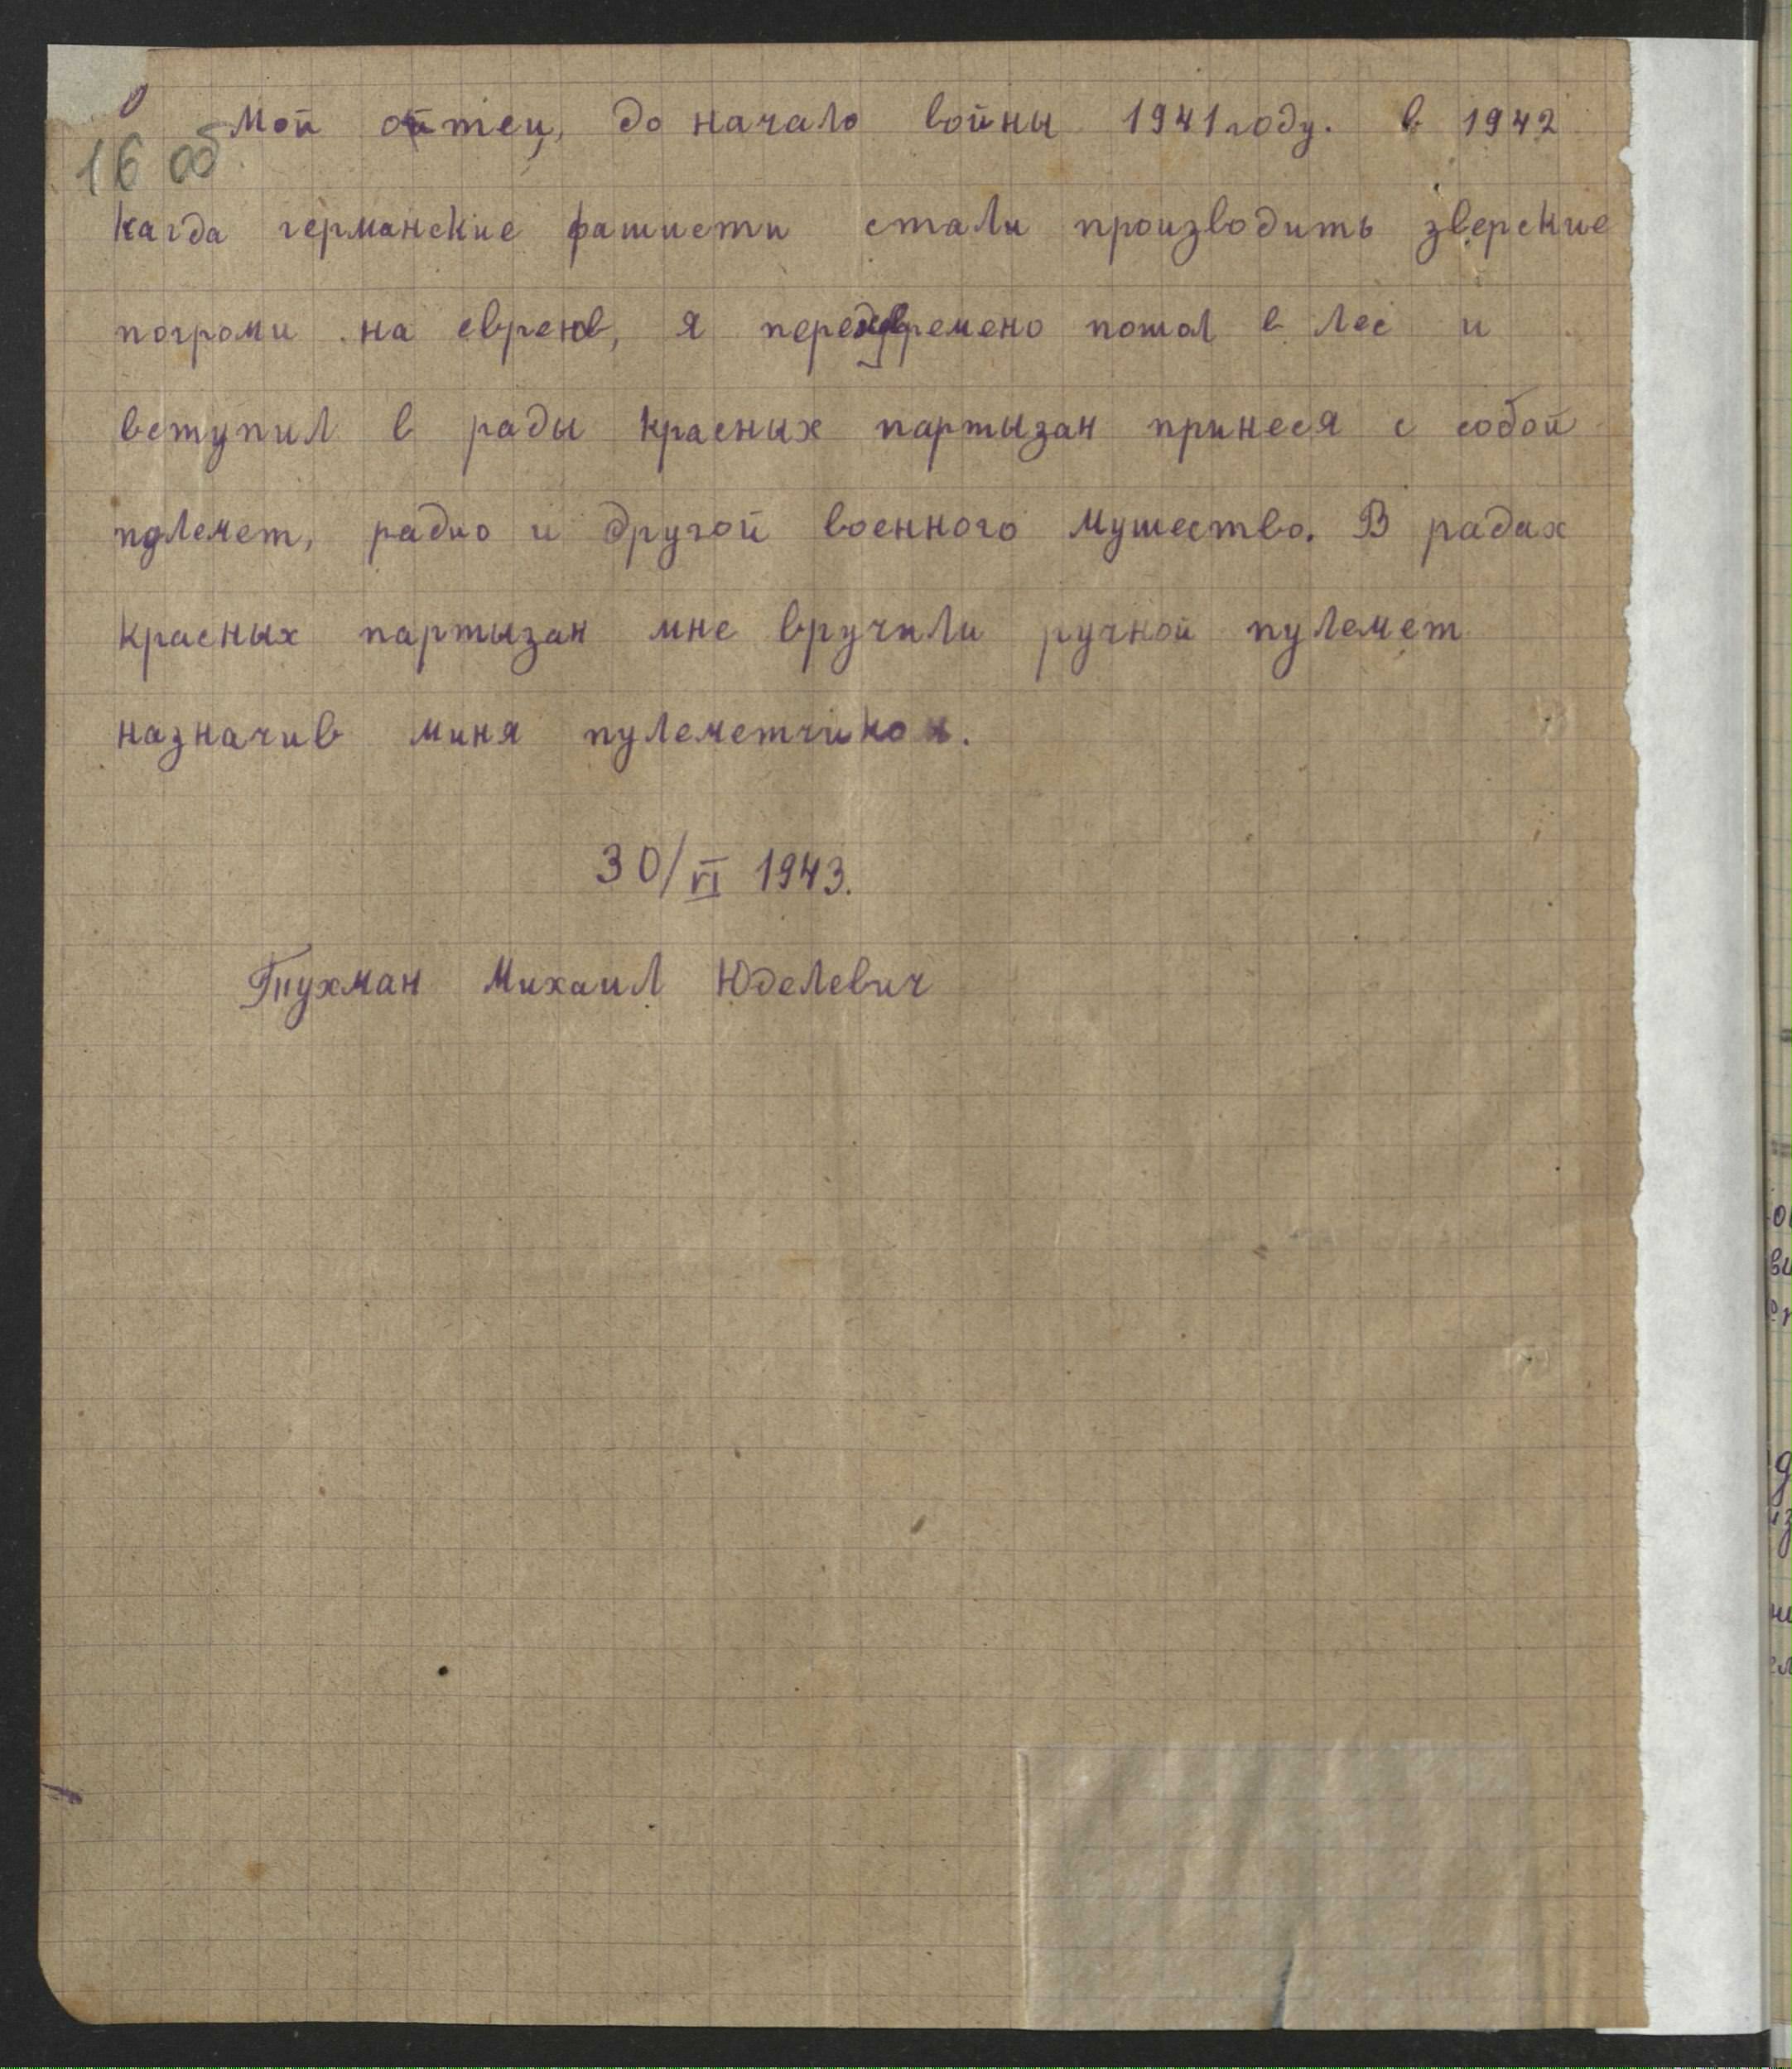 16 об.
Мой отец, до начало войны 1941 году. в 1942
кагда германские фашисти стали производить зверские
погроми на евреев, я передвремено пошол в лес и
вступил в рады красных партызан принеся с собой
пулемет, радио и другой военного мушество. В радах
красных партызан мне вручили ручной пулемет
назначив миня пулеметчиком.
30/VI 1943.
Михаил Юделевич